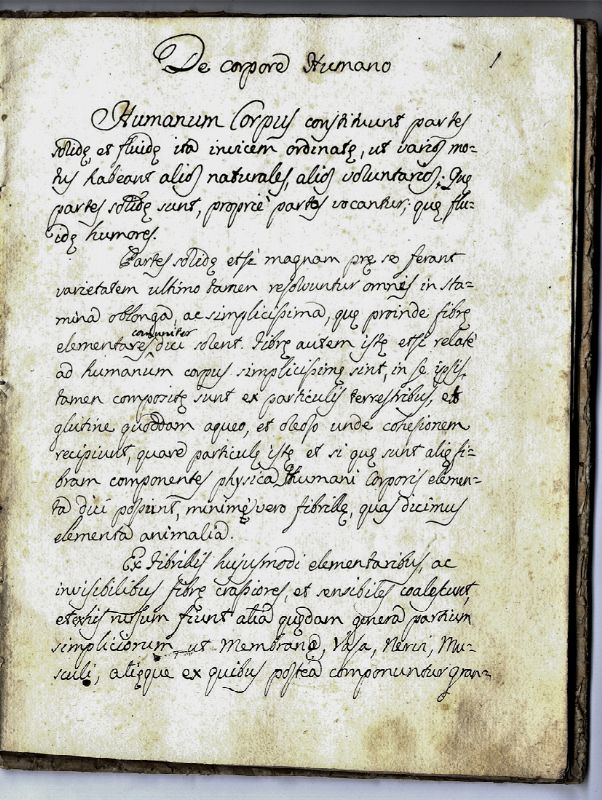 De corpore Humano
1
Humanum Corpus constituunt partes
solidę et fluidę ita invicem ordinatę, ut varios mo-
tus habeant alios naturales, alios voluntarios. Quę
partes solidę sunt, propriè partes vocantur; quę flu-
idę humores.
Partes solidę etsi magnam prę se ferant
varietatem ultimo tamen resolvuntur omnes in sta-
mina oblonga, ac simplicissima, quę proinde fibrę
elementares communiter dici solent. Fibrę autem istę etsi relatè
ad humanum corpus simplicissimę sint, in se ipsis
tamen compositę sunt ex particulis terrestribus, et
glutine quoddam aqueo, et oleoso unde cohesionem
recipiunt, quare particulę istę et si quę sunt alię fi-
bram componentes physica Humani Corporis elemen-
ta dici possunt, minimè vero fibrillę, quas dicimus
elementa animalia.
Ex fibrilis hujusmodi elementaribus, ac
invisibilibus fibrę crassiores, et sensibiles coalescunt,
et ex his rursum fiunt alia quędam genera partium
simpliciorum ut Membranę, Vasa, Nervi, Mu-
sculi, alięque ex quibus postea componuntur gran-